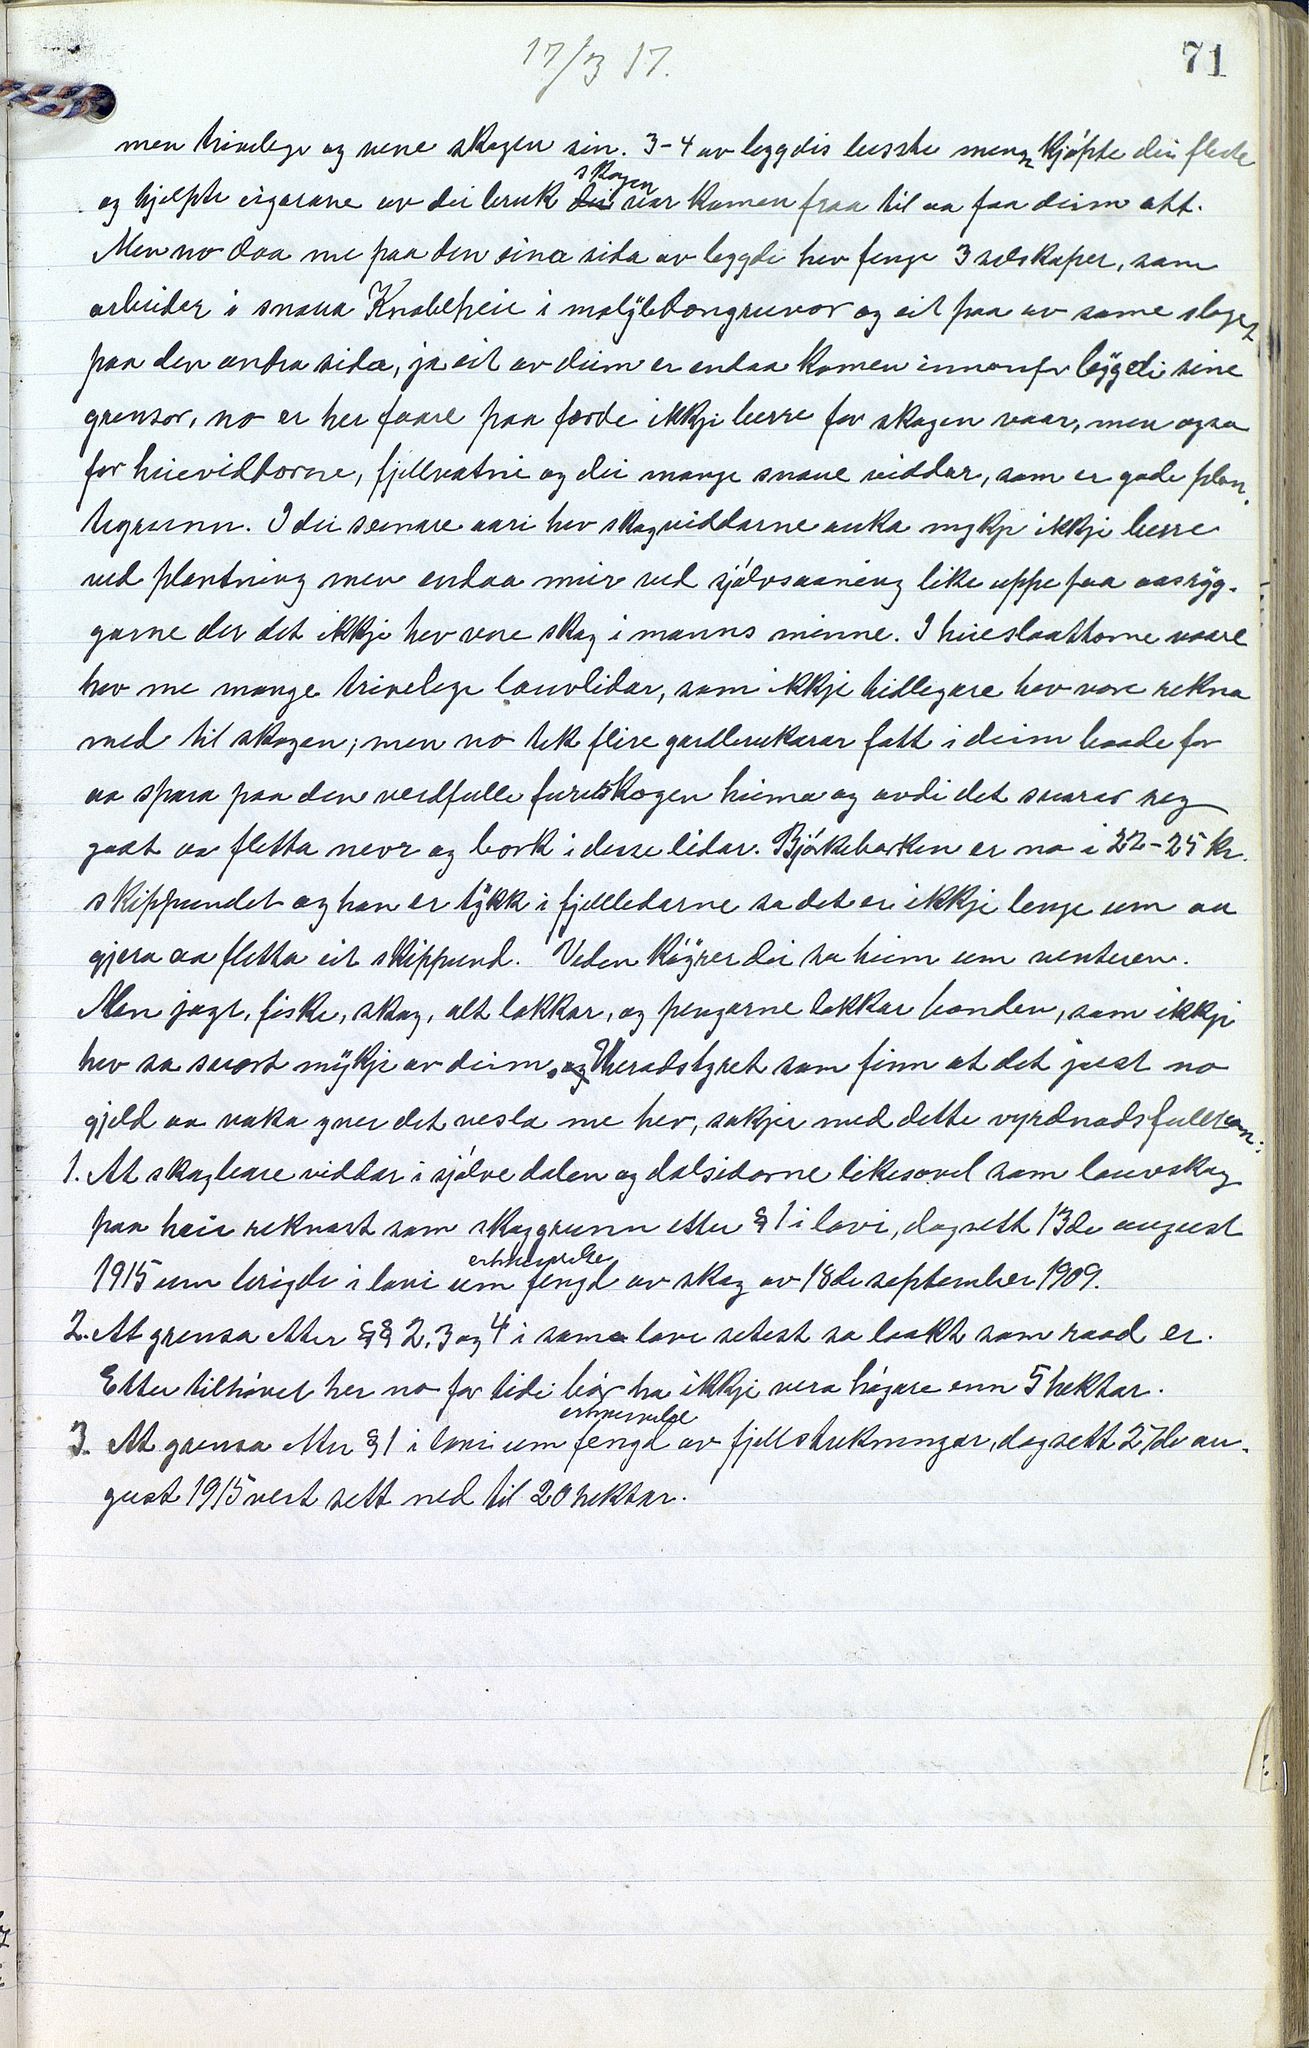 17/3 17.
71
men trivelege og vene skogen sin. 3-4 av bygdis beste menn kjøpte dei fleste
og hjelpte eigarane av dei bruk skogen var komen fraa til aa faa deim att.
Men no daa me paa den eina sida av bygdi hev fenge 3 selskaper, som
arbeider i snaua Knabeheie i molybdengruvor og eit paa av same slaget
paa den andra sida, ja eit av deim er endaa komen innanfor bygdi sine
grensor, no er her faare paa færde ikkje berre for skogen vaar, men ogso
for heievidtorne, fjellvatni og dei mange snaue viddar, som er gode plan-
tegrunn. I dei seinare aari hev skogviddarne auka mykje ikkje berre
ved plantning men endaa meir ved sjølvsaaning like uppe paa aasryg-
garne der det ikkje hev vore skog i manns minne. I heieslaattorne vaare
hev me mange trivelege lauvlidar, som ikkje tidlegare hev vore rekna
med til skogen; men no tek fleire gardbrukarar fatt i deim baade for
aa spara paa den verdfulle furuskogen heima og avdi det svarar seg
godt aa fletta nevr og bork i desse lidar. Bjørkeborken er no i 22-25 kr.
skippundet og han er tykk i fjellledarne so det er ikkje lenge um aa
gjera aa fletta eit skippund. Veden køyrer dei so heim um venteren.
Men jagt, fiske, skog, alt lokkar, og pengarne lokkar bonden, som ikkje
hev so svært mykje av deim. Heradstyret som finn at det just no
gjeld aa vaka yver det vesla me hev, søkjer med dette vyrdnadsfullt om:
1. At skogbare viddar i sjølve dalen og dalsidorne likesovel som lauvskog
paa heie reknast som skoggrunn etter § 1 i lovi, dagsett 13de august
1915 um brigde i lovi um fengd av skog av 18de september 1909.
2. At grensa etter §§ 2, 3 og 4 i same lovi setest so laakt som raad er.
Etter tilhøvet her no for tidi bør ho ikkje vera høgare enn 5 hektar.
3. At grensa etter § 1 i lovi um fengd av fjellstrekningar, dagsett 27de au-
gust 1915 vert sett ned til 20 hektar.